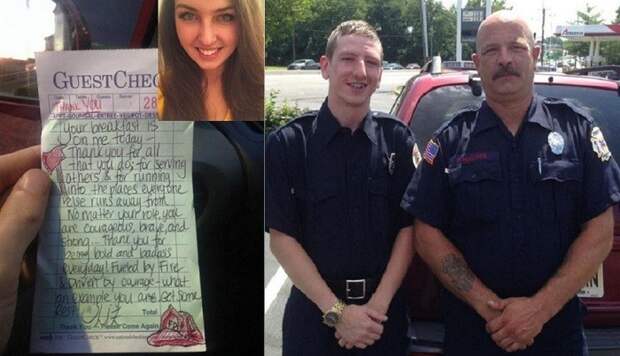 GUESTCHEC
THANK YOU
28
APPT-SOUP/SAL-ENTREE-VEG/POT-DESS
Your breakfast is
on me today -
Thank you for all
that you do; for serving
others & for running
into the places everyone
else runs away from.
No matter your role, you
are courageous, brave, and
strong... Thank you for
being bold and badass
everyday! Fueled by Fire
& Driven by courage - what
an example you are. Get some
rest
Total
Thank You - Please Come Again